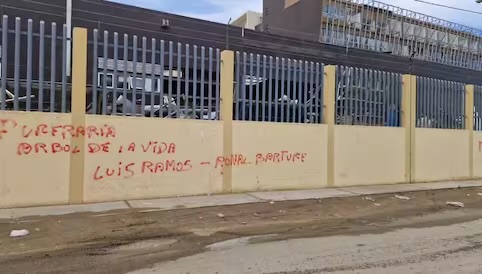 PURERARIA
ARBOL DE LA VIDA
LUIS RAMOS - RONAL BARTURE